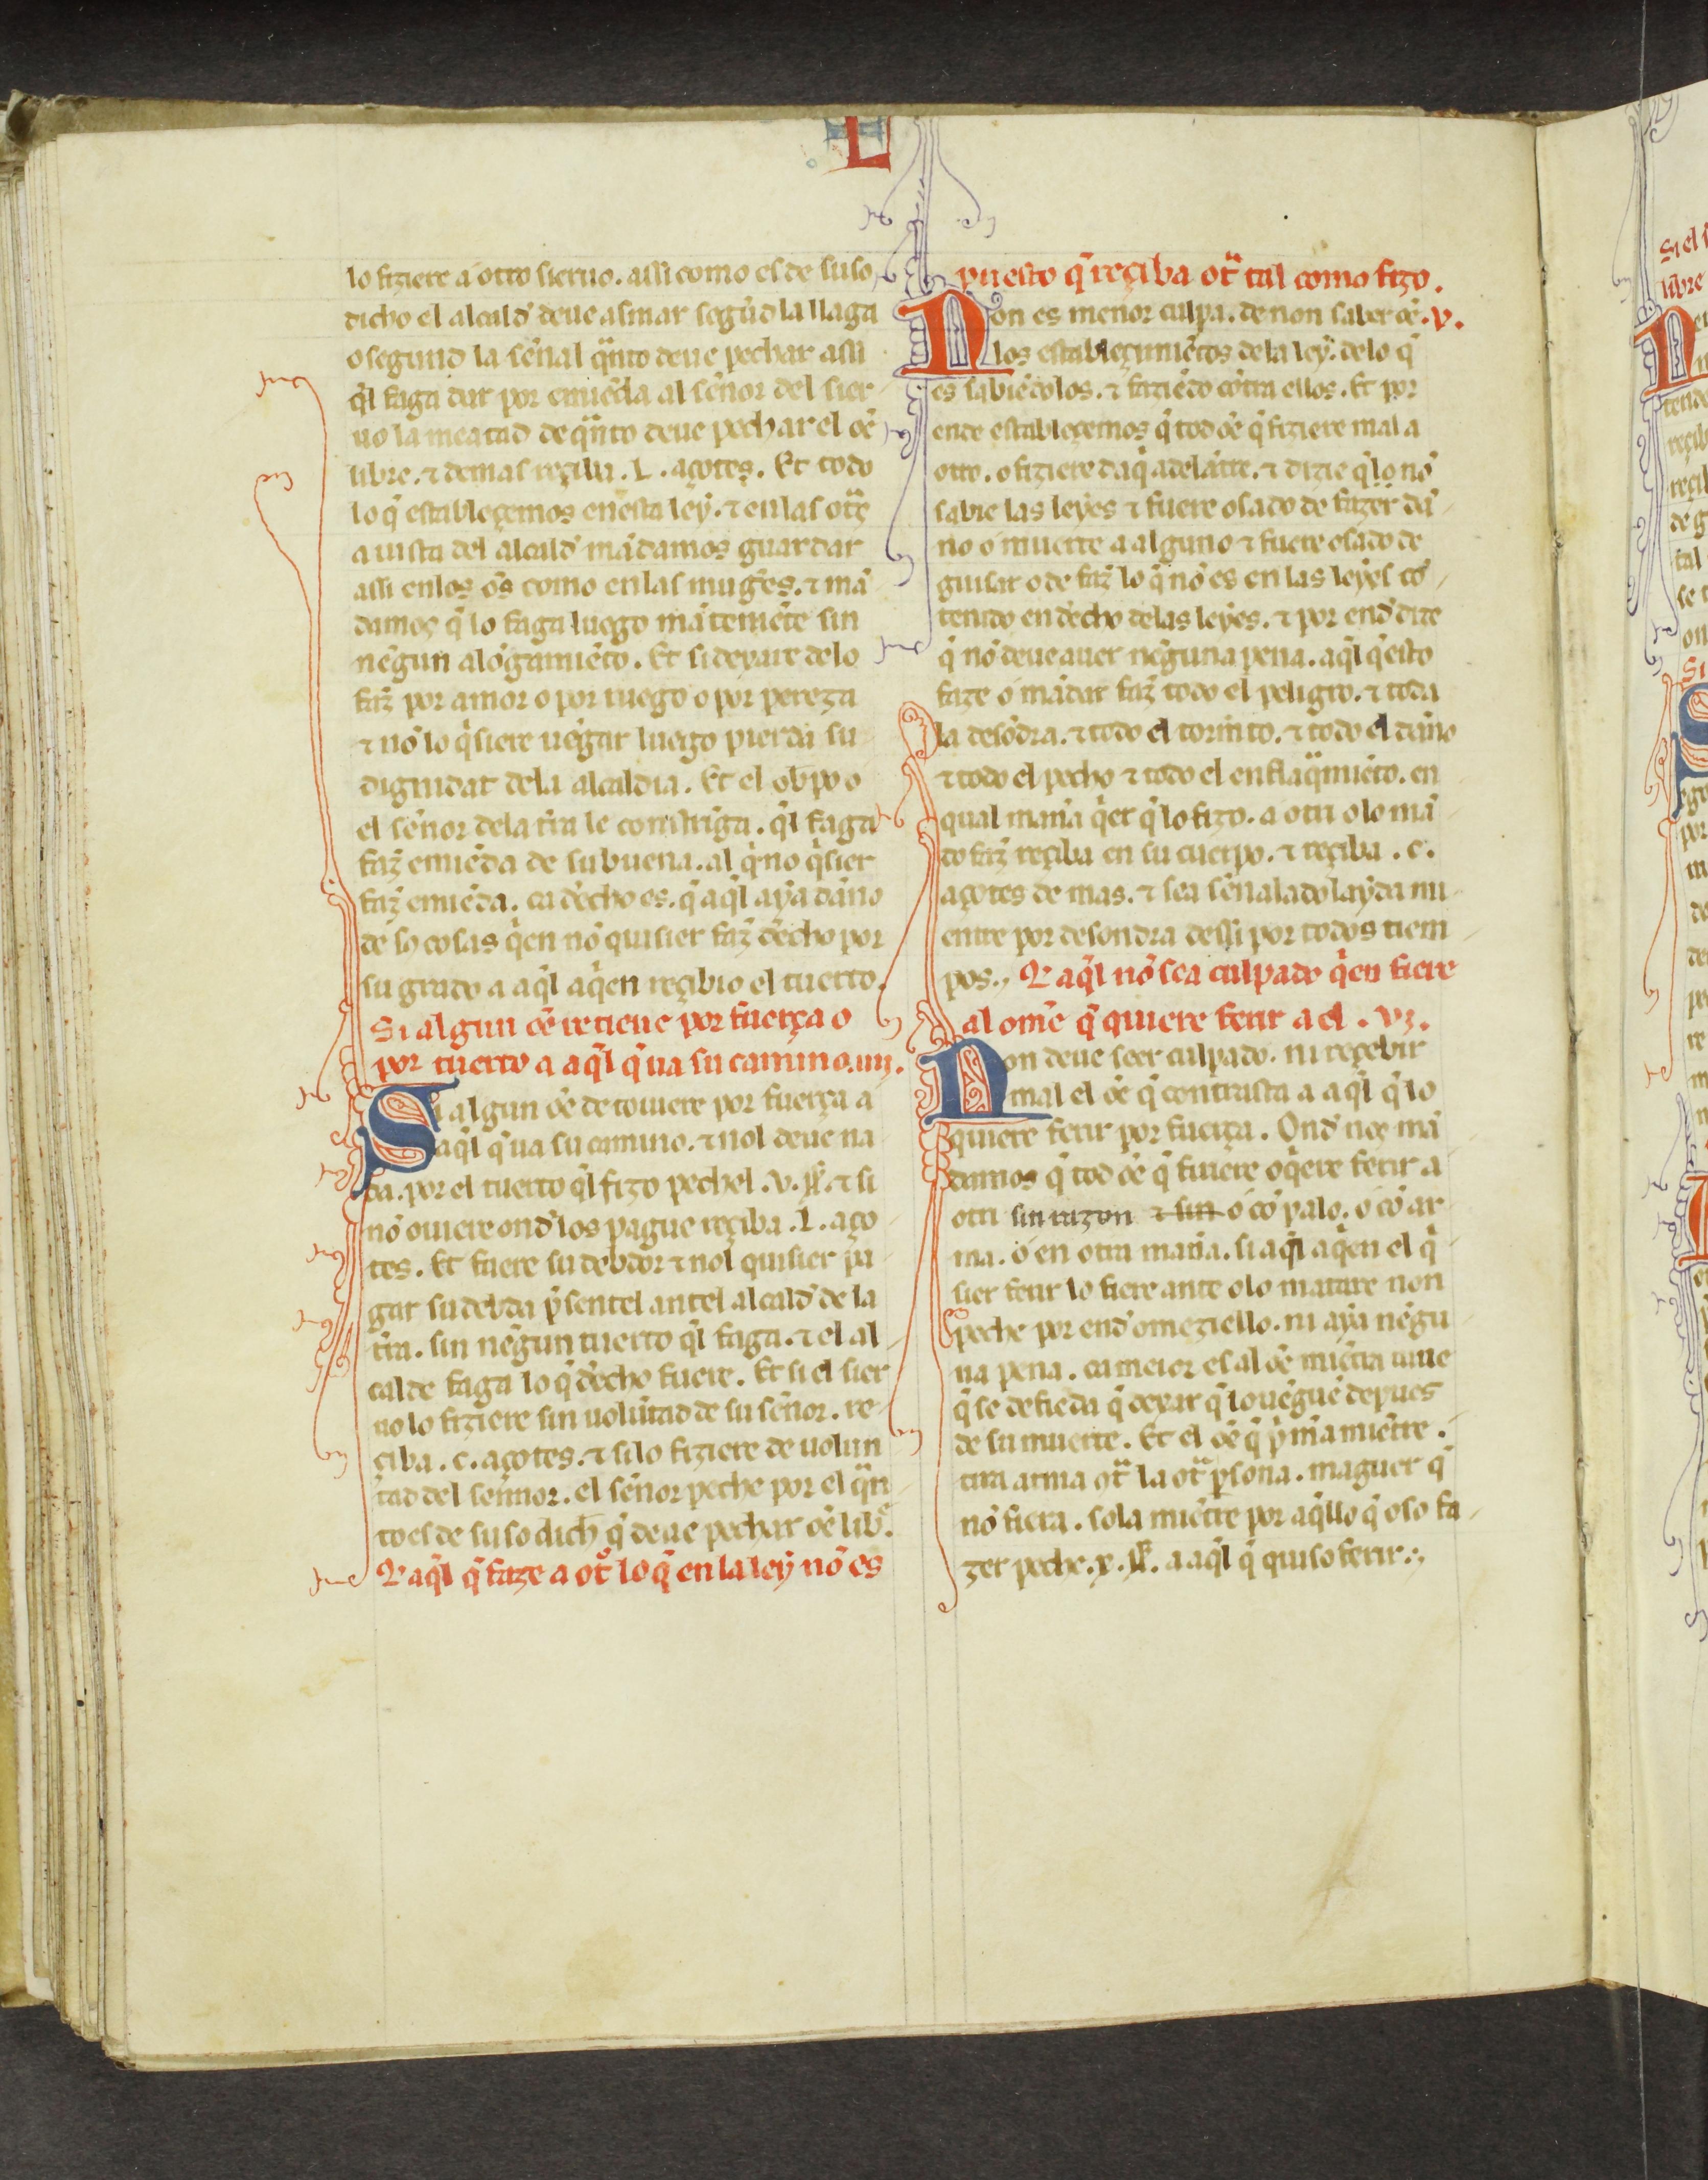 L
lo fiziere a otro sieruo. assi como es de suso
dicho el alcald̉ deue asmar segũd la llaga
o segund la señal q̃nto deue pechar assi
q̉l faga dar por emiẽda al señor del sier
uo la meatad de q̃nto deue pechar el oẽ
libre. ⁊ demas reçiba .L. açotes. Et todo
lo q̃ estableçemos en esta ley. ⁊ en las otr̃s
a uista del alcald̉ mãdamos guardar
assi en los oẽs como en las mugẽs. ⁊ mã
damos q̃ lo faga luego mãteniẽte sin
nẽgun alõgamiẽto. Et si dexare de lo
faz̃ por amor o por ruego o por pereza
⁊ nõ lo q̉siere uẽgar luego pierda su
dignidat dela alcaldia. Et el ob̃po o
el señor dela tr̃ra le constriñga. q̉l faga
faz̃ emiẽda de su buena. al q̉ no q̉sier
faz̃ emiẽda. ca derecho es. q̃ aq̃l aya daño
de so cosas q̉en nõ quisier faz̃ dr̃echo por
su grado a aq̃l aq̉en reçibio el tuerto.
Si algun oẽ retiene por fuerça o
por tuerto a aq̃l q̃ ua su camino. iiij.
Si algun oẽ detouiere por fuerça a
aq̃l q̃ ua su camino. ⁊ nol deue na
da. por el tuerto q̉l fizo pechel .v. ss̃. ⁊ si
nõ ouiere ond̉ los pague reçiba .L. aço
tes. Et fuere su debdor ⁊ nol quisier pa
gar su debda p̃sentel antel alcald̉ de la
tr̃ra. sin nẽgun tuerto q̉l faga. ⁊ el al
calde faga lo q̃ dr̃echo fuere. Et si el sier
uo lo fiziere sin uolũtad de su señor. re
çiba .c. açotes. ⁊ si lo fiziere de uolun
tad del señnor. el señor peche por el q̃n
to es de suso dich̃ q̃ deue pechar oẽ lib̉e.
Q̃ aq̃l q̃ faze a ot̃ lo q̃ en la ley nõ es
puesto q̃ reçiba ot̃ tal como fizo.
Non es menor culpa. de non saber oẽ .v.
los estableçimiẽtos de la ley. de lo q̃
es sabiẽdolos. ⁊ faziẽdo cõtra ellos. Et por
ende estableçemos q̃ tod oẽ q̃ fiziere mal a
otro. o fiziere daq̉ adelãtre. ⁊ dizie q̃ lo nõ
sabie las leyes ⁊ fuere osado de fazer dã
no o muerte a alguno ⁊ fuere osado de
guisar o de faz̃ lo q̃ nõ es en las leyes cõ
tenido en dr̃echo delas leyes. ⁊ por end̉ dize
q̃ nõ deue auer nẽguna pena. aq̃l q̃ esto
faze o mãdar faz̃ todo el peligro. ⁊ toda
la desõdra. ⁊ todo el tormẽto. ⁊ todo el daño
⁊ todo el pecho ⁊ todo el enflaq̃miẽto. en
qual manr̃a q̉er q̃ lo fizo. a otri o lo mã
do faz̃ reçiba en su cuerpo. ⁊ reçiba .c.
açotes de mas. ⁊ sea señalado layda mi
entre por desondra dessi por todos tiem
pos., Q̃ aq̃l nõ sea culpado q̉en fiere
al omẽ q̃ quiere ferir a el .vj.
Non deue seer culpado. ni reçebir
mal el oẽ q̃ contrasta a aq̃l q̃ lo
quiere ferir por fuerça. Ond̉ nos mã
damos q̃ tod oẽ q̃ fuiere o q̉ere ferir a
otri sin razon ⁊ sin o cõ palo. o cõ ar
ma. o en otra manr̃a. si aq̃l aq̉en el q̉
sier ferir lo fiere ante o lo matare non
peche por end̉ omeziello. ni aya nẽgu
na pena. ca meior es al oẽ miẽtra uiue
q̃ se defiẽda q̃ dexar q̃ lo uẽguẽ depues
de su muerte. Et el oẽ q̃ p̉m̃amiẽtre.
tira arma ot̃ la ot̃ p̃sona. maguer q̃
nõ fiera. sola miẽtre por aq̃llo q̃ oso fa
zer peche .x. ss̃. a aq̃l q̃ quiso ferir.,